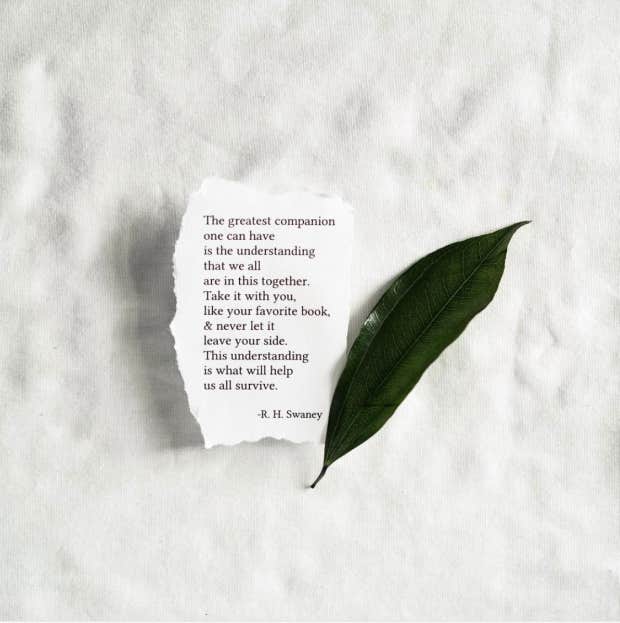 The greatest companion
one can have
is the understanding
that we all
are in this together.
Take it with you,
like your favorite book,
& never let it
leave your side.
This understanding
is what will help
us all survive.
-R. H. Swaney